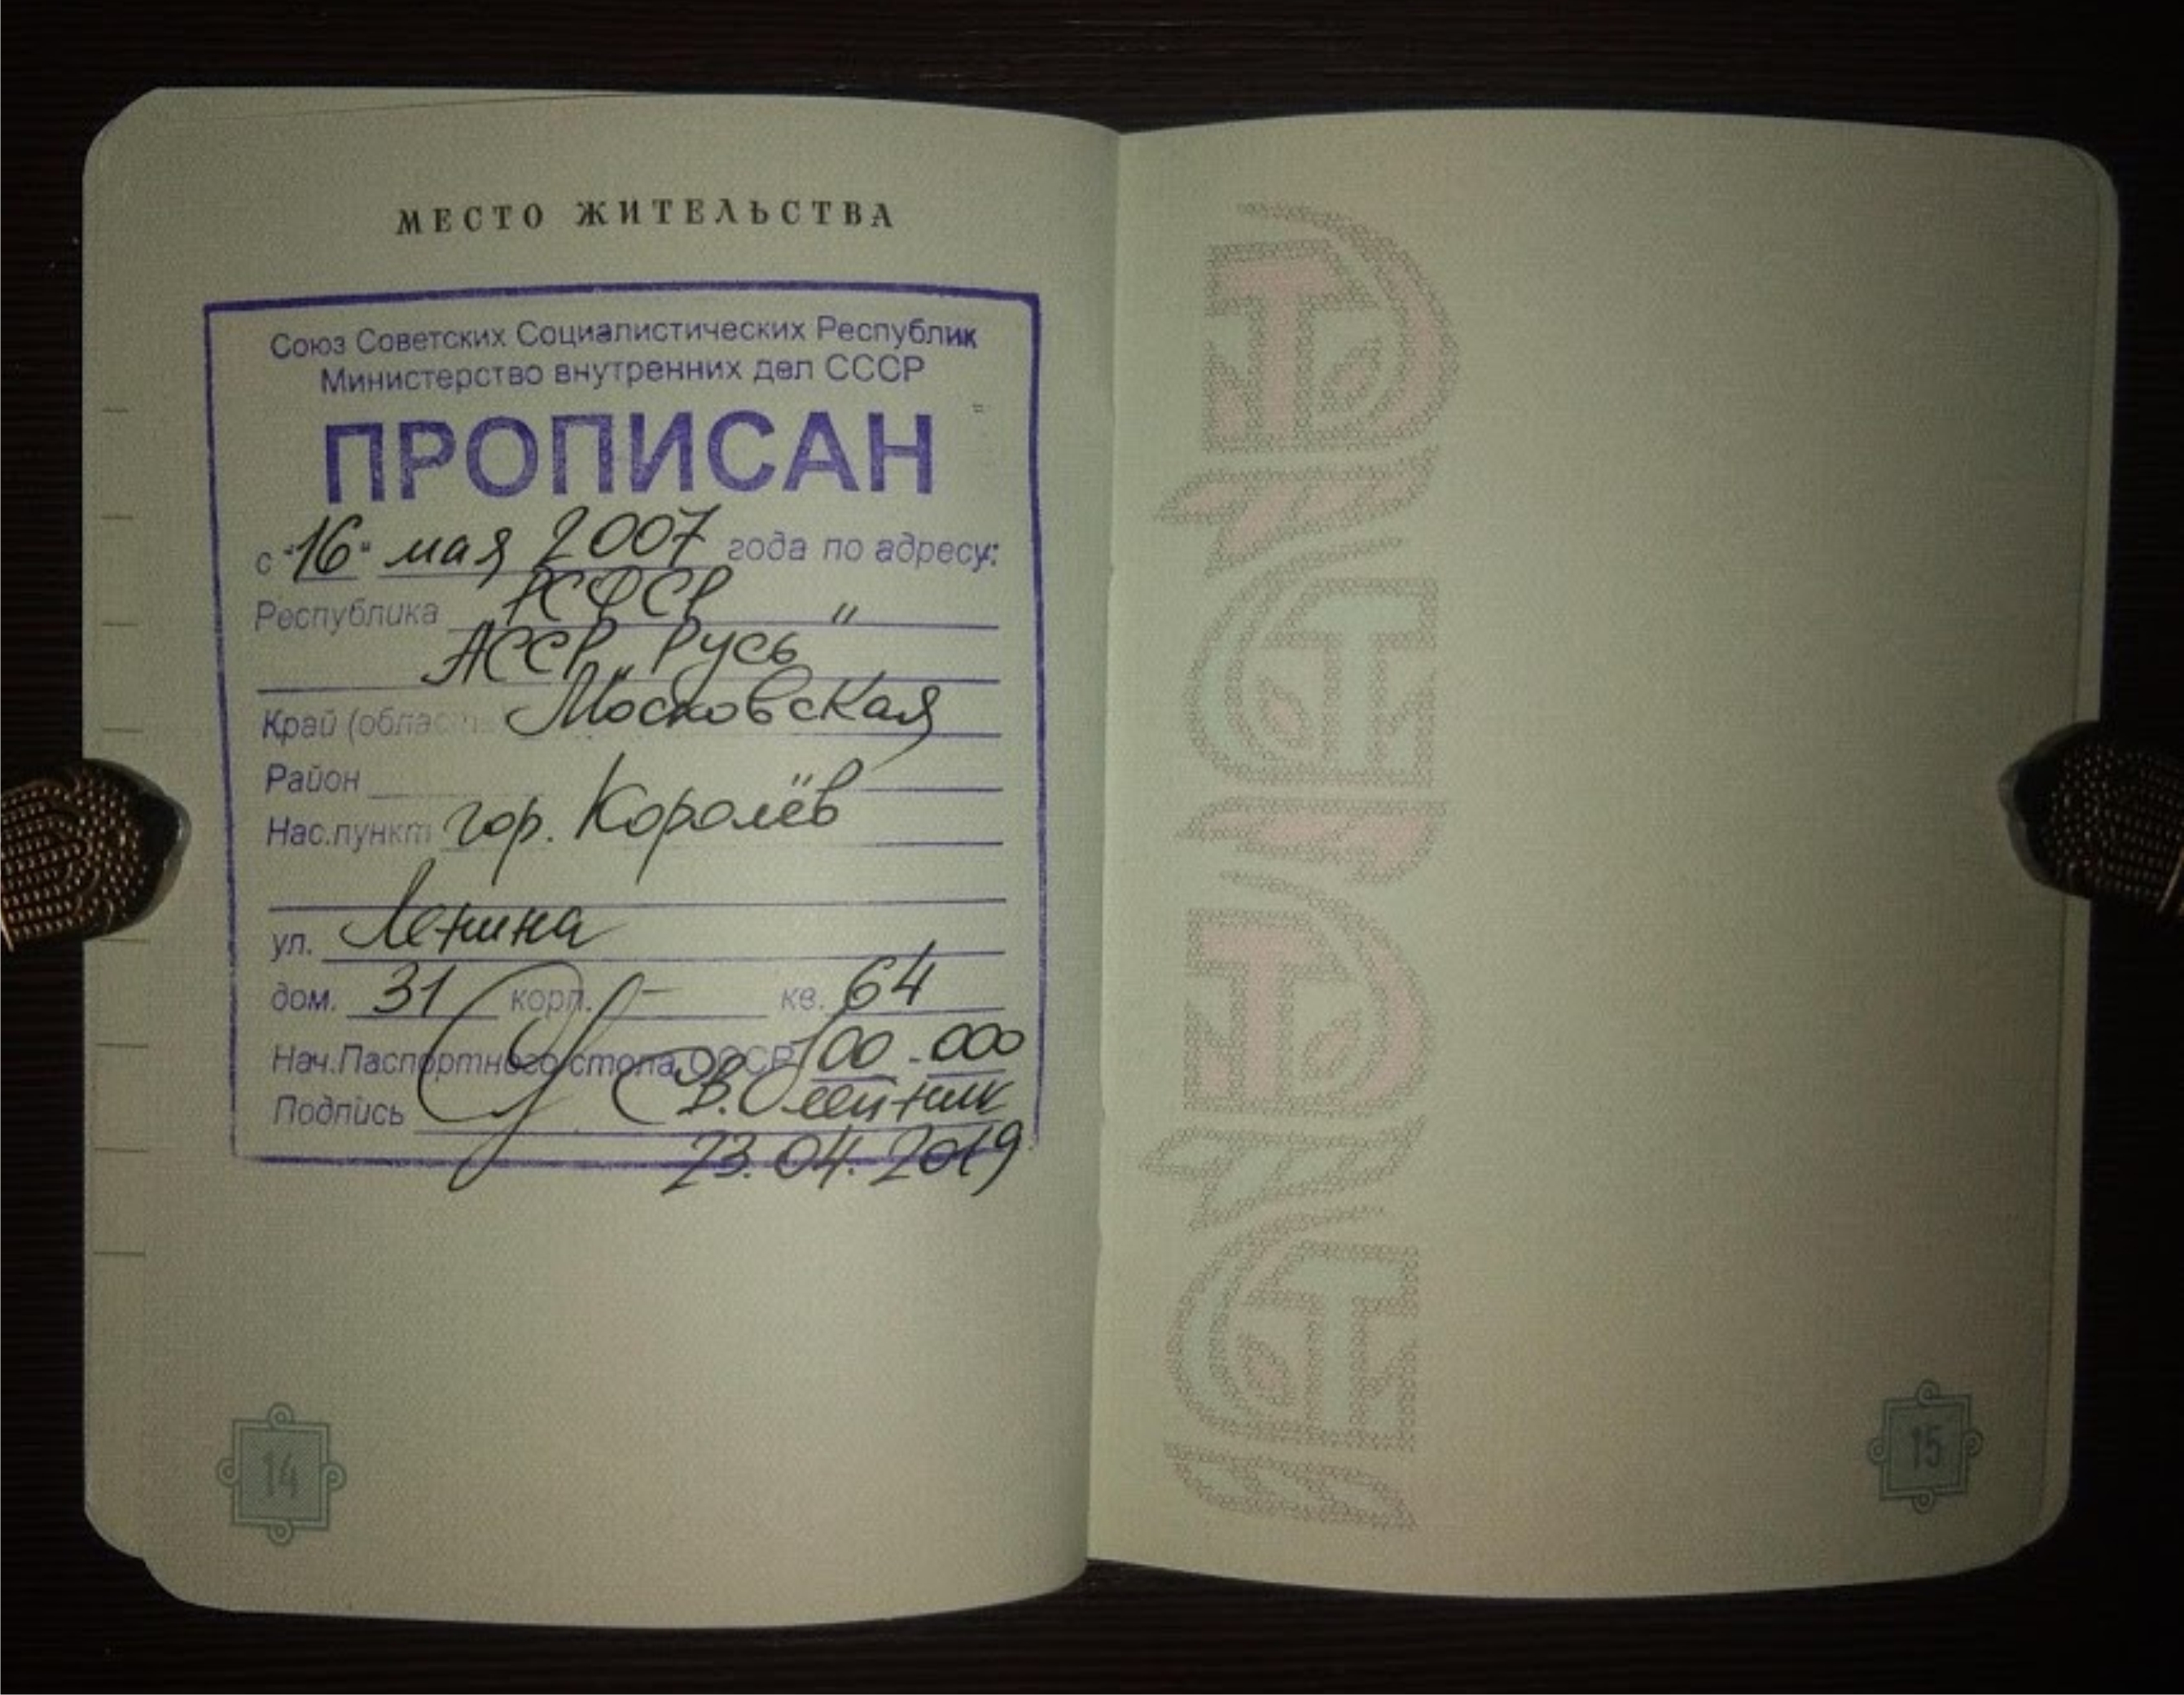 МЕСТО ЖИТЕЛЬСТВА
Союз Советских Социалистических Республик
Министерство внутренних дел СССР
ПРОПИСАН
с "16" мая 2007 года по адресу:
Республика РСФСР
АССР "Русь"
Край (область) Московская
Район
Нас.пункт гор. Королёв
ул. Ленина
дом. 31 корп. — кв. 64
Нач.Паспортного стола СССР 100-000
Подпись В. Олейник
23.04.2019
14
15